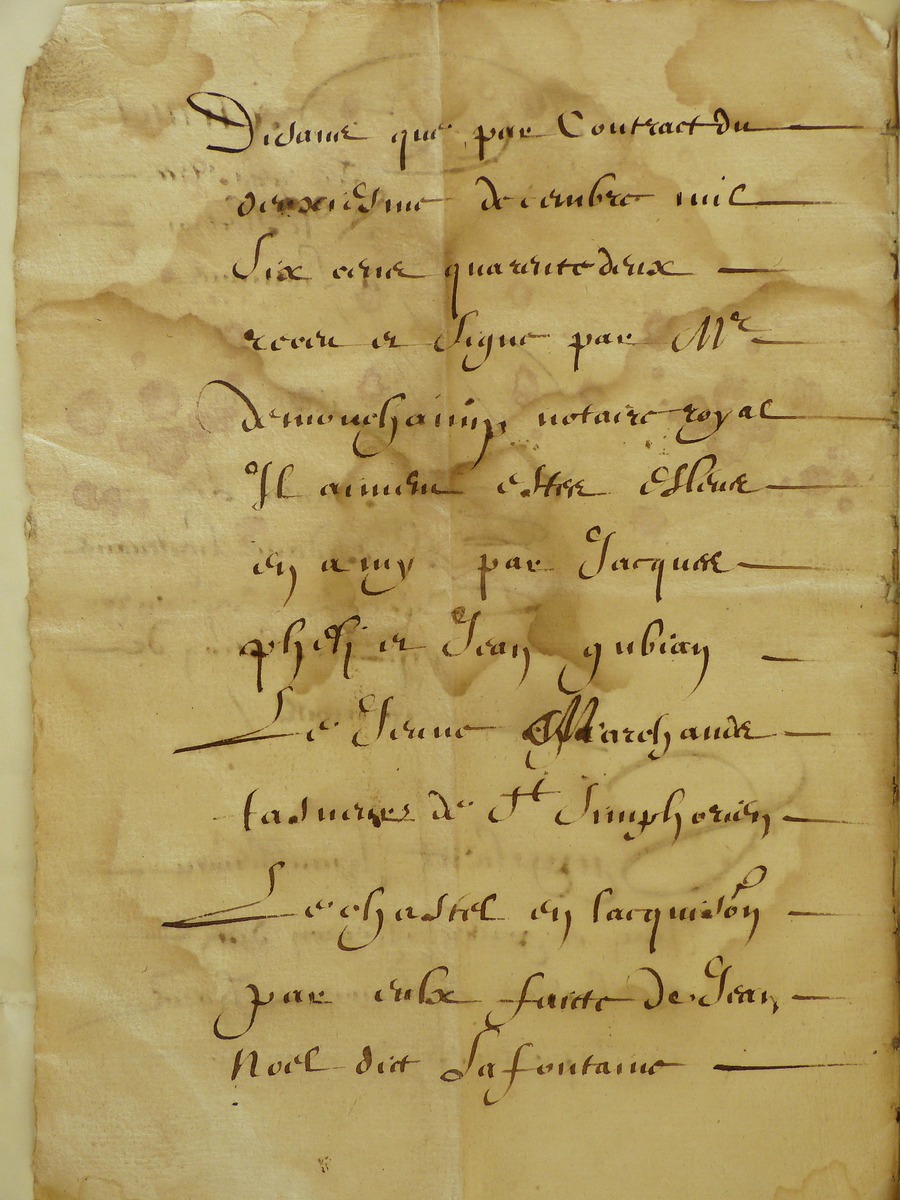 Disant que par Contract du
deuxiesme decembre mil
Six cens quarente deux
receu et Signe par Mr
demouchamp, notaire royal
Il auuroit estes Esleue
en amy par Jacques
et Jean gubian
Le Jeune Marchands
tasneurs de St Simphorien
Le chastel en lacquisõn
par eulx faicte de Jean
Noel dict Lafontaine